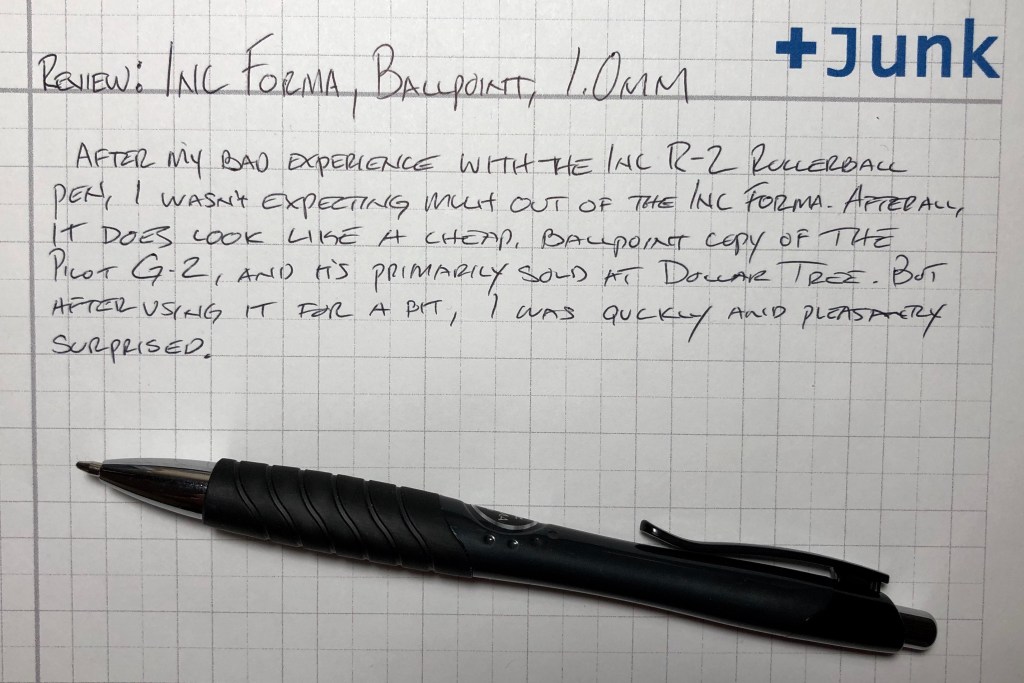 +Junk
REVIEW: INC FORMA, BALLPOINT, 1.0MM
AFTER MY BAD EXPERIENCE WITH THE INC R-2 ROLLERBALL
PEN, I WASN'T EXPECTING MUCH OUT OF THE INC FORMA. AFTERALL,
IT DOES LOOK LIKE A CHEAP, BALLPOINT COPY OF THE
PILOT G-2, AND IT'S PRIMARILY SOLD AT DOLLAR TREE. BUT
AFTER USING IT FOR A BIT, I WAS QUCKLY AND PLEASANTLY
SURPRISED.